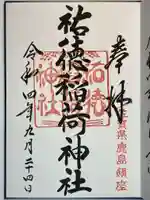 奉拝
佐賀県鹿島鎮座
祐徳稲荷神社
祐徳
神社
令和四年九月二十四日